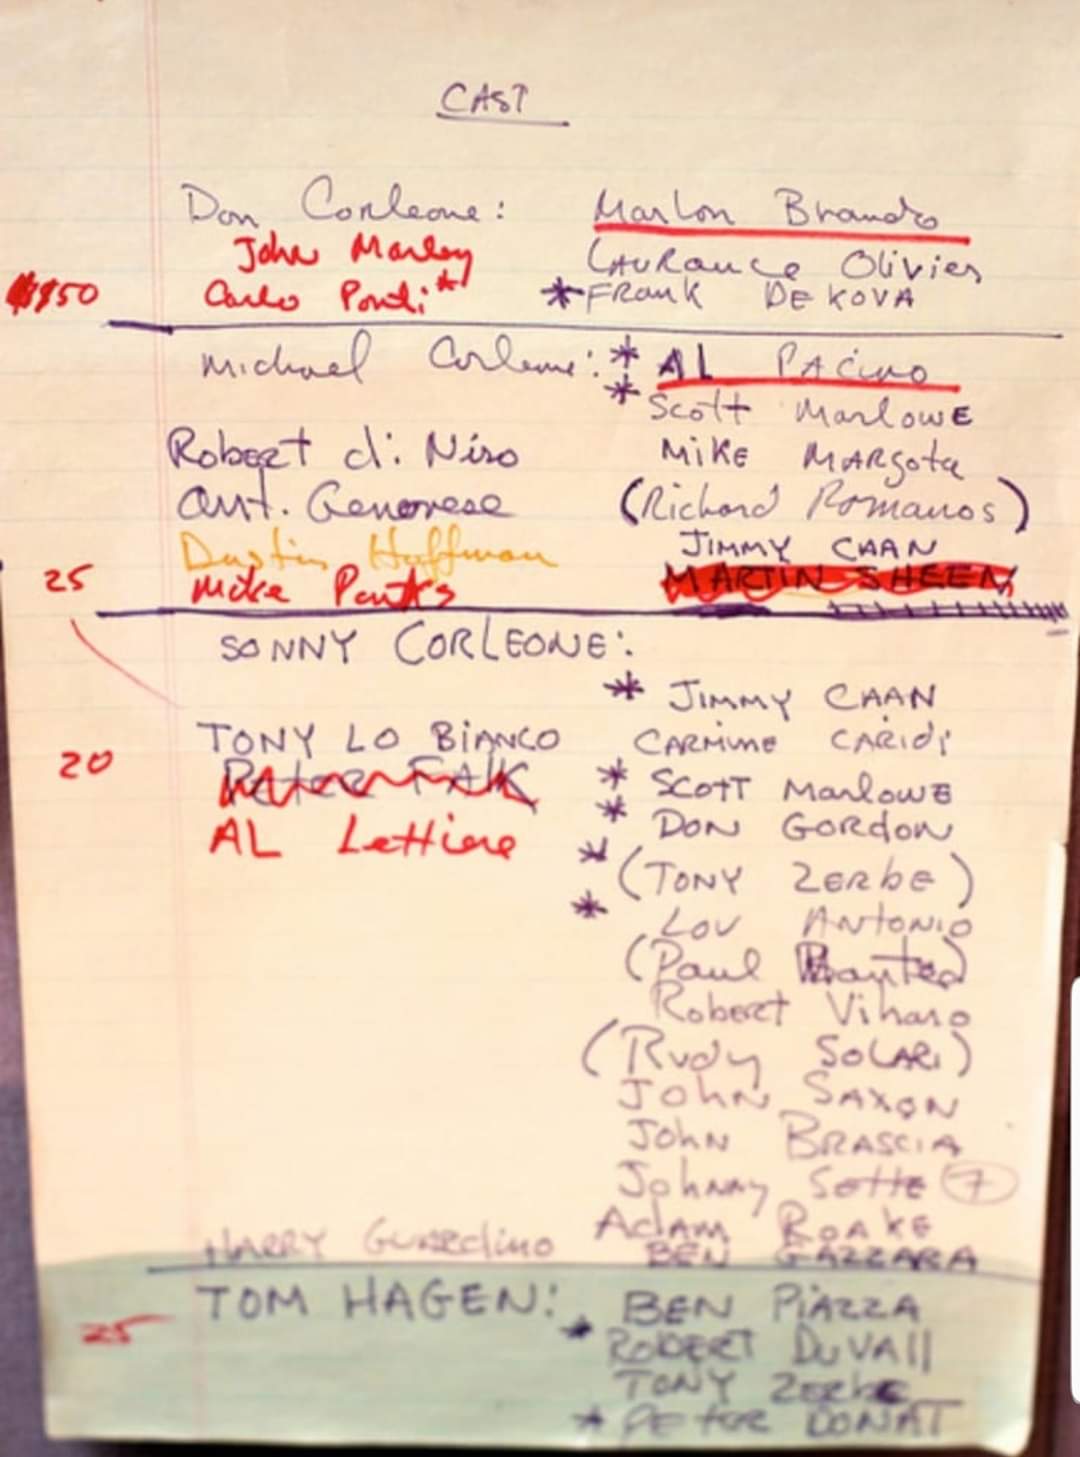 CAST
Don Corleone: Marlon Brando
John Marley Laurance Olivier
$150 Carlo Ponti* * Frank DE KOVA
Michael Corleone: * AL PACino
* Scott MarlowE
Robert di Niro MiKE MARgota
Ant. Genovese (Richard Romanos)
Dustin Hoffman JIMMY CAAN
25 Mike Parks MARTIN SHEEN
SONNY CORLEONE:
* JIMMY CAAN
TONY LO BiANCO CARMINE CARIDI
20 Peter FALK * SCOTT MarlowE
* DON GORdON
AL LeTTiere * (TONY ZERbE)
* LOU ANTONIO
(Paul
Robert Viharo
(Rudy SOLARI)
JOHN SAXON
JOHN BRASCIA
Johnny Sette 7
Adam ROAKE
HARRY GUARdino BEN GAZZARA
TOM HAGEN: BEN PiAZZA
25 * ROBERT DuVAll
TONY ZERbE
* PETER DONAT